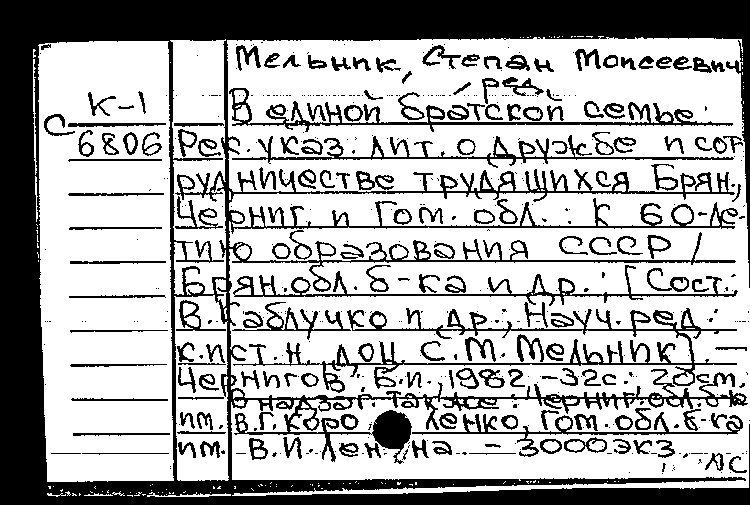 Мельник, Степан Моисеевич
, ред.
К-1 В единой братской семье:
С 6806 Рек. указ. лит. о дружбе и сот
рудничестве трудящихся Брян.,
Черниг. и Гом. обл.: К 60-ле-
тию образования СССР /
Брян. обл. б-ка и др.; [Сост.:
В. Каблучко и др.; Науч. ред.:
к. ист. н. доц. С. М. Мельник]. —
Чернигов: Б. и., 1982. - 32 с.; 20 см.
В надзаг. также: Черниг. обл. б-ка
им. В. Г. Короленко, Гом. обл. б-ка
им. В. И. Ленина. - 3000 экз.
АС